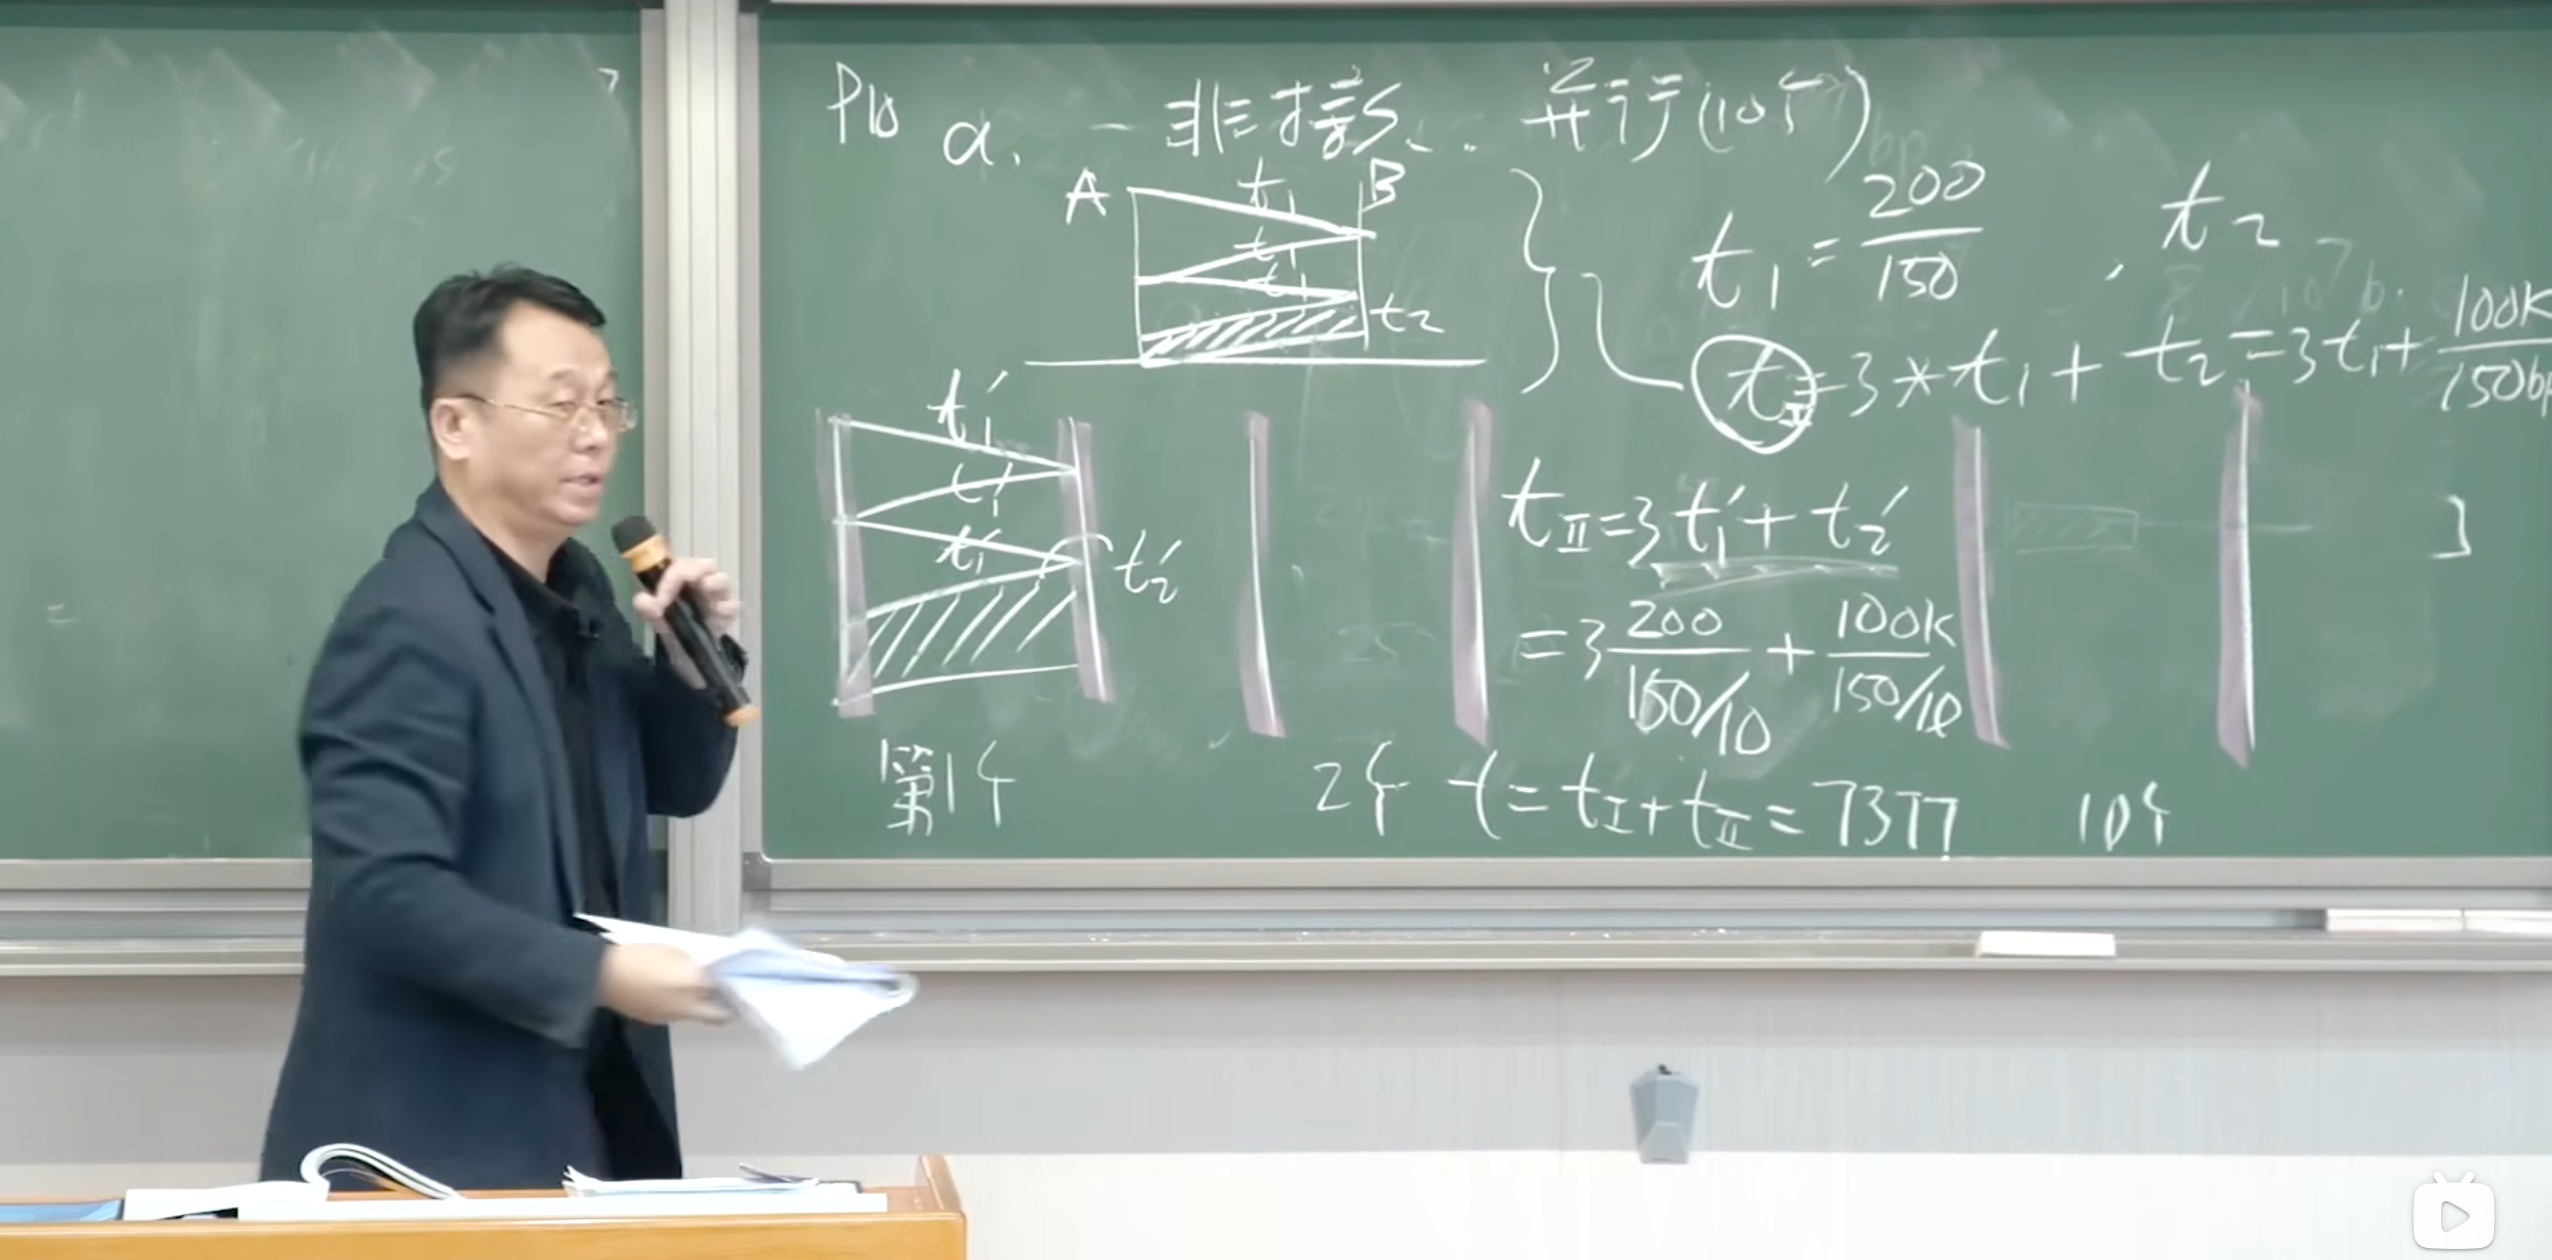 P10 a. 非持续. 并行(10个)
A t₁ B
t₁
t₁
t₂
t₁ = 200/150 , t₂
= 3 * t₁ + t₂ = 3t₁ + 100K/150bp
t₁'
t₁'
t₁'
t₂'
t_Ⅱ = 3t₁' + t₂'
= 3 200/150/10 + 100K/150/10
第1个
2个
t = t_Ⅰ + t_Ⅱ = 7377
10个